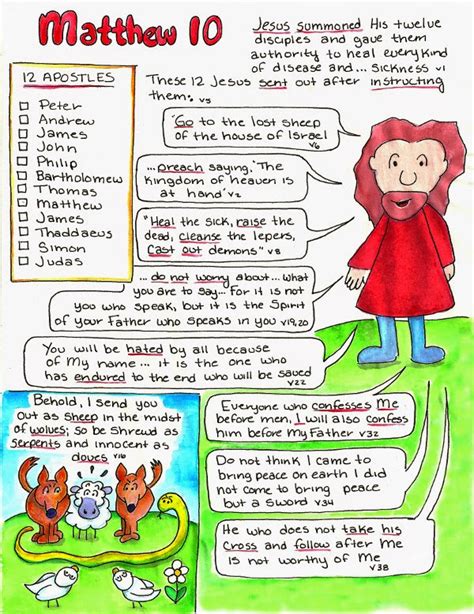 Matthew 10
Jesus summoned His twelve
disciples and gave them
authority to heal every kind
of disease and... sickness v1
These 12 Jesus sent out after instructing
them: v5
12 APOSTLES
Peter
Andrew
James
John
Philip
Bartholomew
Thomas
Matthew
James
Thaddaeus
Simon
Judas
"Go to the lost sheep
of the house of Israel
v6
...preach saying, 'The
Kingdom of heaven is
at hand' v2
"Heal the sick, raise the
dead, cleanse the lepers,
cast out demons" v8
... do not worry about... what
you are to say... for it is not
you who speak, but it is the Spirit
of your Father who speaks in you v19,20
You will be hated by all because
of My name ... it is the one who
has endured to the end who will be saved
v22
Behold, I send you
out as sheep in the midst
of wolves; so be shrewd as
serpents and innocent as
doves v16
Everyone who confesses Me
before men, I will also confess
him before My Father v32
Do not think I came to
bring peace on earth I did
not come to bring peace
but a sword v34
He who does not take his
cross and follow after Me
is not worthy of Me
v38